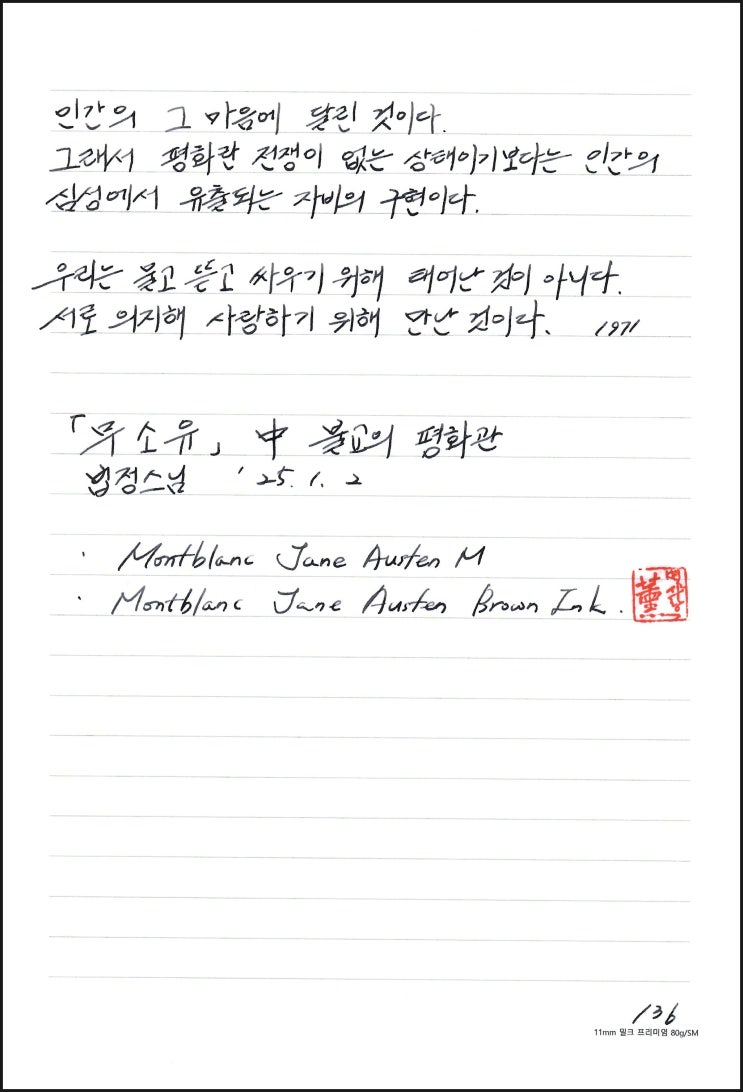 인간의 그 마음에 달린 것이다.
그래서 평화란 전쟁이 없는 상태이기보다는 인간의
심성에서 유출되는 자비의 구현이다.
우리는 물고 뜯고 싸우기 위해 태어난 것이 아니다.
서로 의지해 사랑하기 위해 만난 것이다. 1971
「무소유」 中 불교의 평화관
법정스님 '25. 1. 2
· Montblanc Jane Austen M
· Montblanc Jane Austen Brown Ink.
136
11mm 밀크 프리미엄 80g/SM